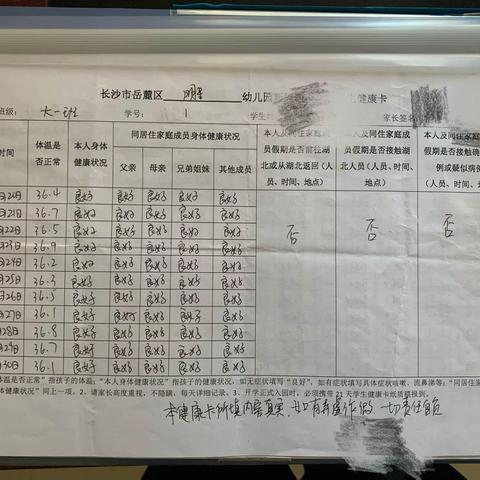 长沙市岳麓区 明星 幼儿园 健康卡
班级: 大一班 学号: 1 学生 家长签名
时间 体温是否正常 本人身体健康状况 同居住家庭成员身体健康状况 本人及同住家庭成员假期是否前往湖北或从湖北返回(人员、时间、地点) 本人及同住家庭成员假期是否接触湖北人员(人员、时间、地点) 本人及同住家庭 假期是否接触确 例或疑似病例 (人员、时间、地
父亲 母亲 兄弟姐妹 其他成员
月20日 36.4 良好 良好 良好 良好 良好 否 否 否
月21日 36.7 良好 良好 良好 良好 良好
月22日 36.5 良好 良好 良好 良好 良好
月23日 36.9 良好 良好 良好 良好 良好
月24日 36.2 良好 良好 良好 良好 良好
月25日 36.3 良好 良好 良好 良好 良好
月26日 36.5 良好 良好 良好 良好 良好
月27日 36.1 良好 良好 良好 良好 良好
月28日 36.8 良好 良好 良好 良好 良好
月29日 36.7 良好 良好 良好 良好 良好
月30日 36.1 良好 良好 良好 良好 良好
体温是否正常"指孩子的体温;"本人身体健康状况"指孩子的健康状况,如无症状填写"良好",如有症状填写具体症状咳嗽、流鼻涕等;"同居住家
体健康状况"同上一项。2、请家长高度重视,不隐瞒,每天详细记录。3、开学正式入园时,必须携带 天学生健康卡纸质稿报到。
本健康卡所填内容真实,如有弄虚作假,一切责任自负